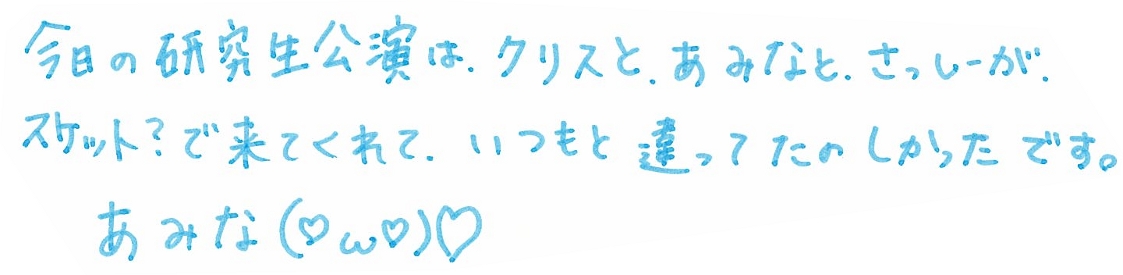 今日の研究生公演は、クリスと、あみなと、さっしーが、
スケット?で来てくれて、いつもと違ってたのしかったです。
あみな(♡ω♡)♡